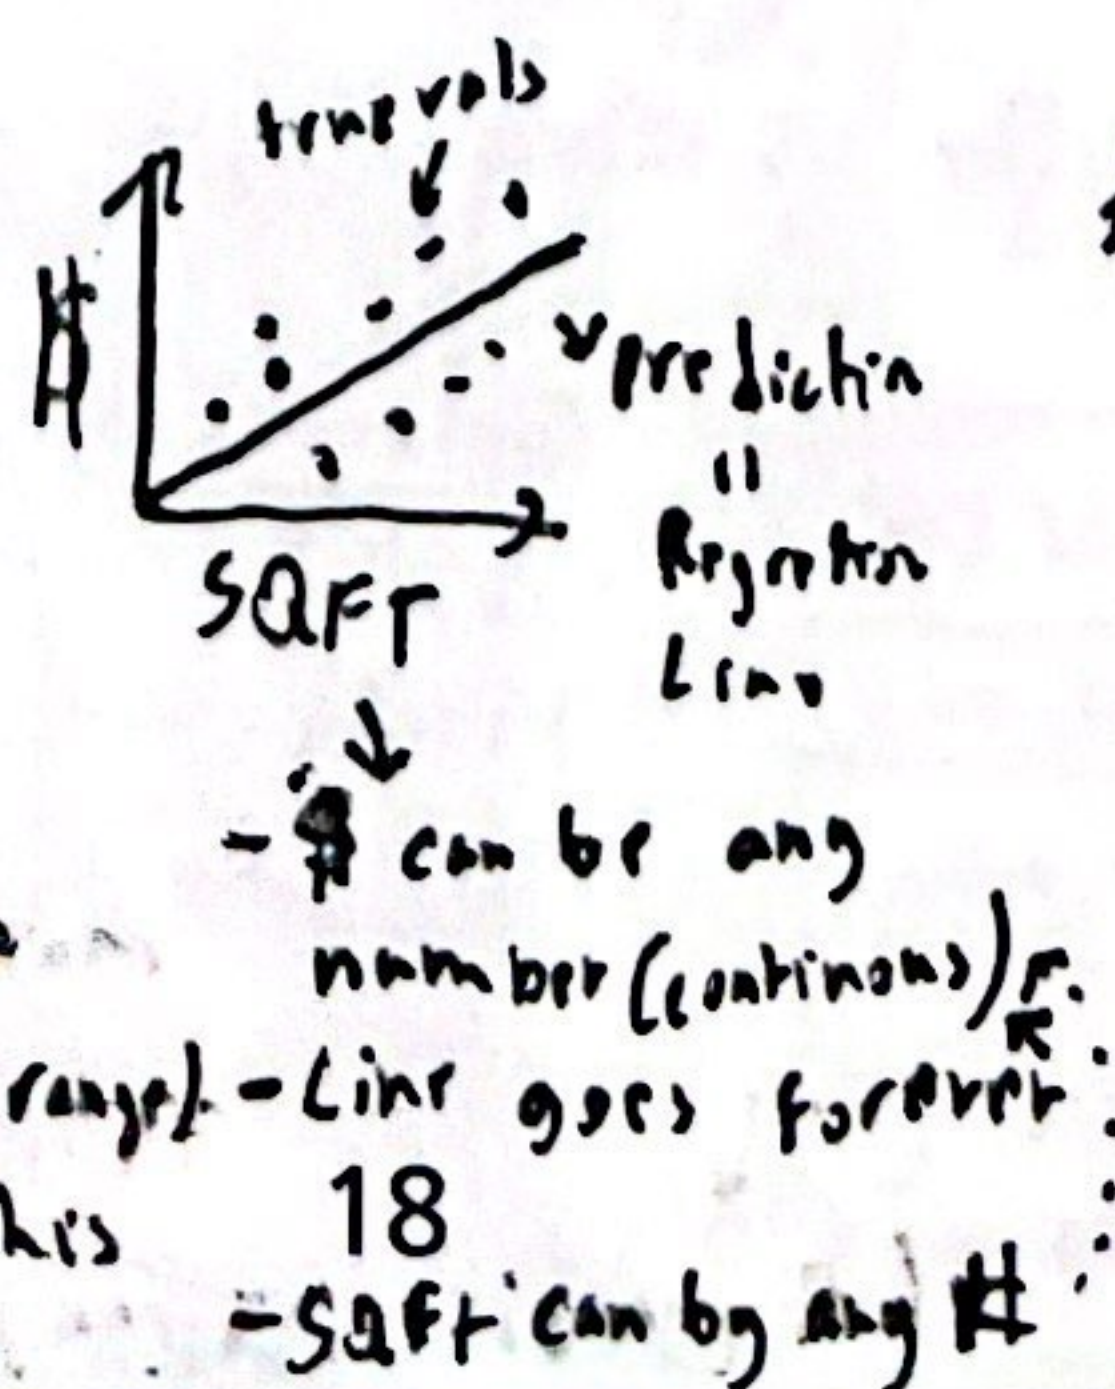 true vals
prediction
"
Regression
Line
SQFT
- $ can be any
number (continous)
range) - Line goes forever
his
18
- SQFt can by any #